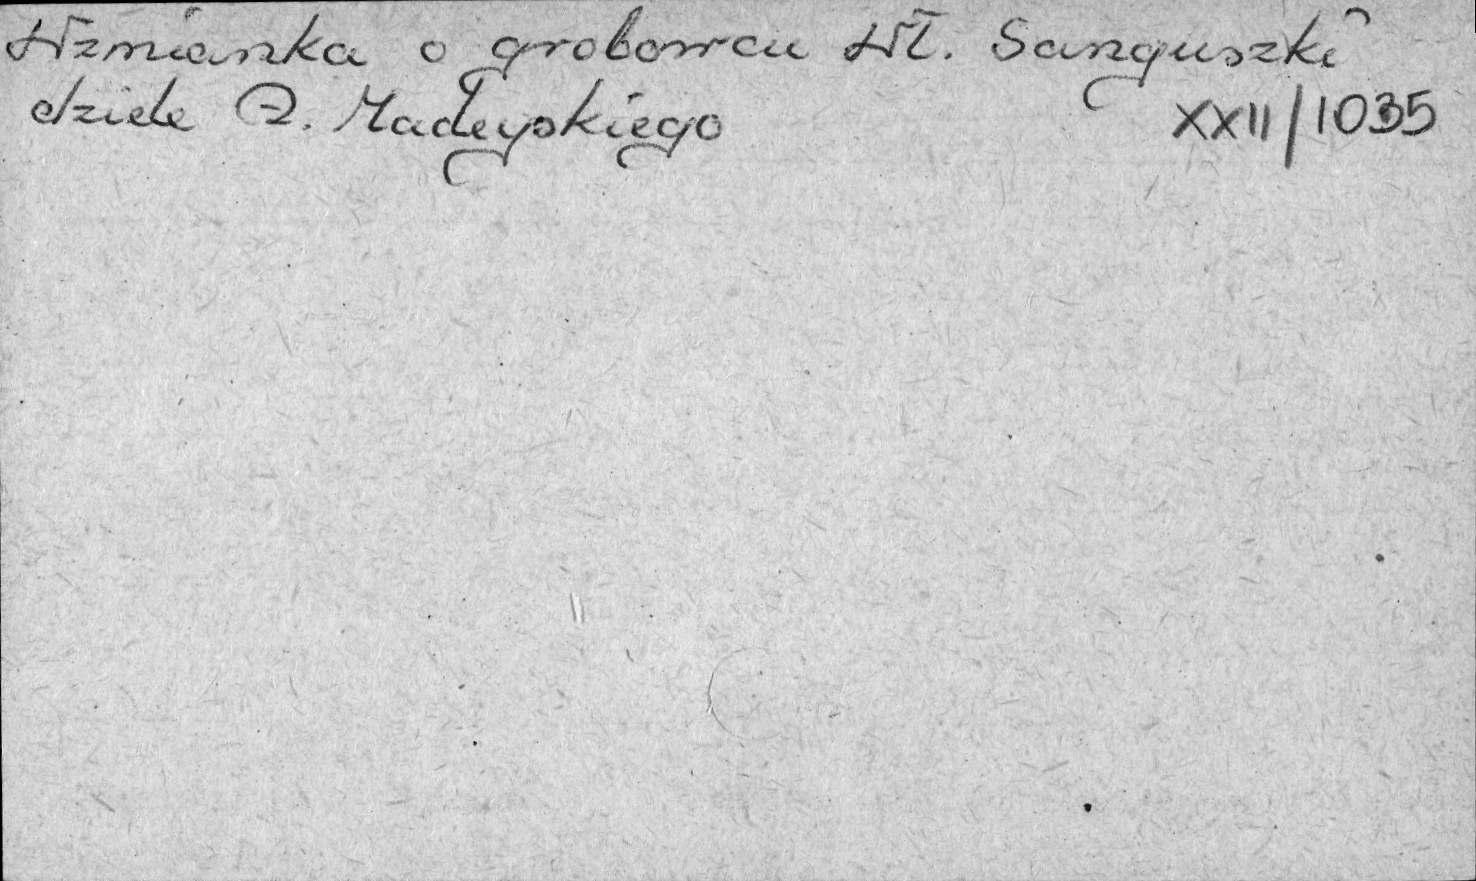 Wzmianka o grobowcu Wł. Sanguszki
dziele A. Madeyskiego
XXII/1035